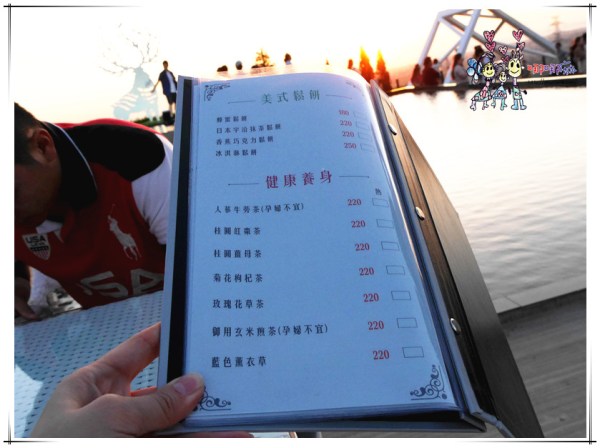 美式鬆餅
蜂蜜鬆餅
日本宇治抹茶鬆餅 220
香蕉巧克力鬆餅 220
冰淇淋鬆餅 250
健康養身
熱
人蔘牛蒡茶(孕婦不宜) 220
桂圓紅棗茶 220
桂圓薑母茶 220
菊花枸杞茶 220
玫瑰花草茶 220
御用玄米煎茶(孕婦不宜) 220
藍色薰衣草 220
USA
USA